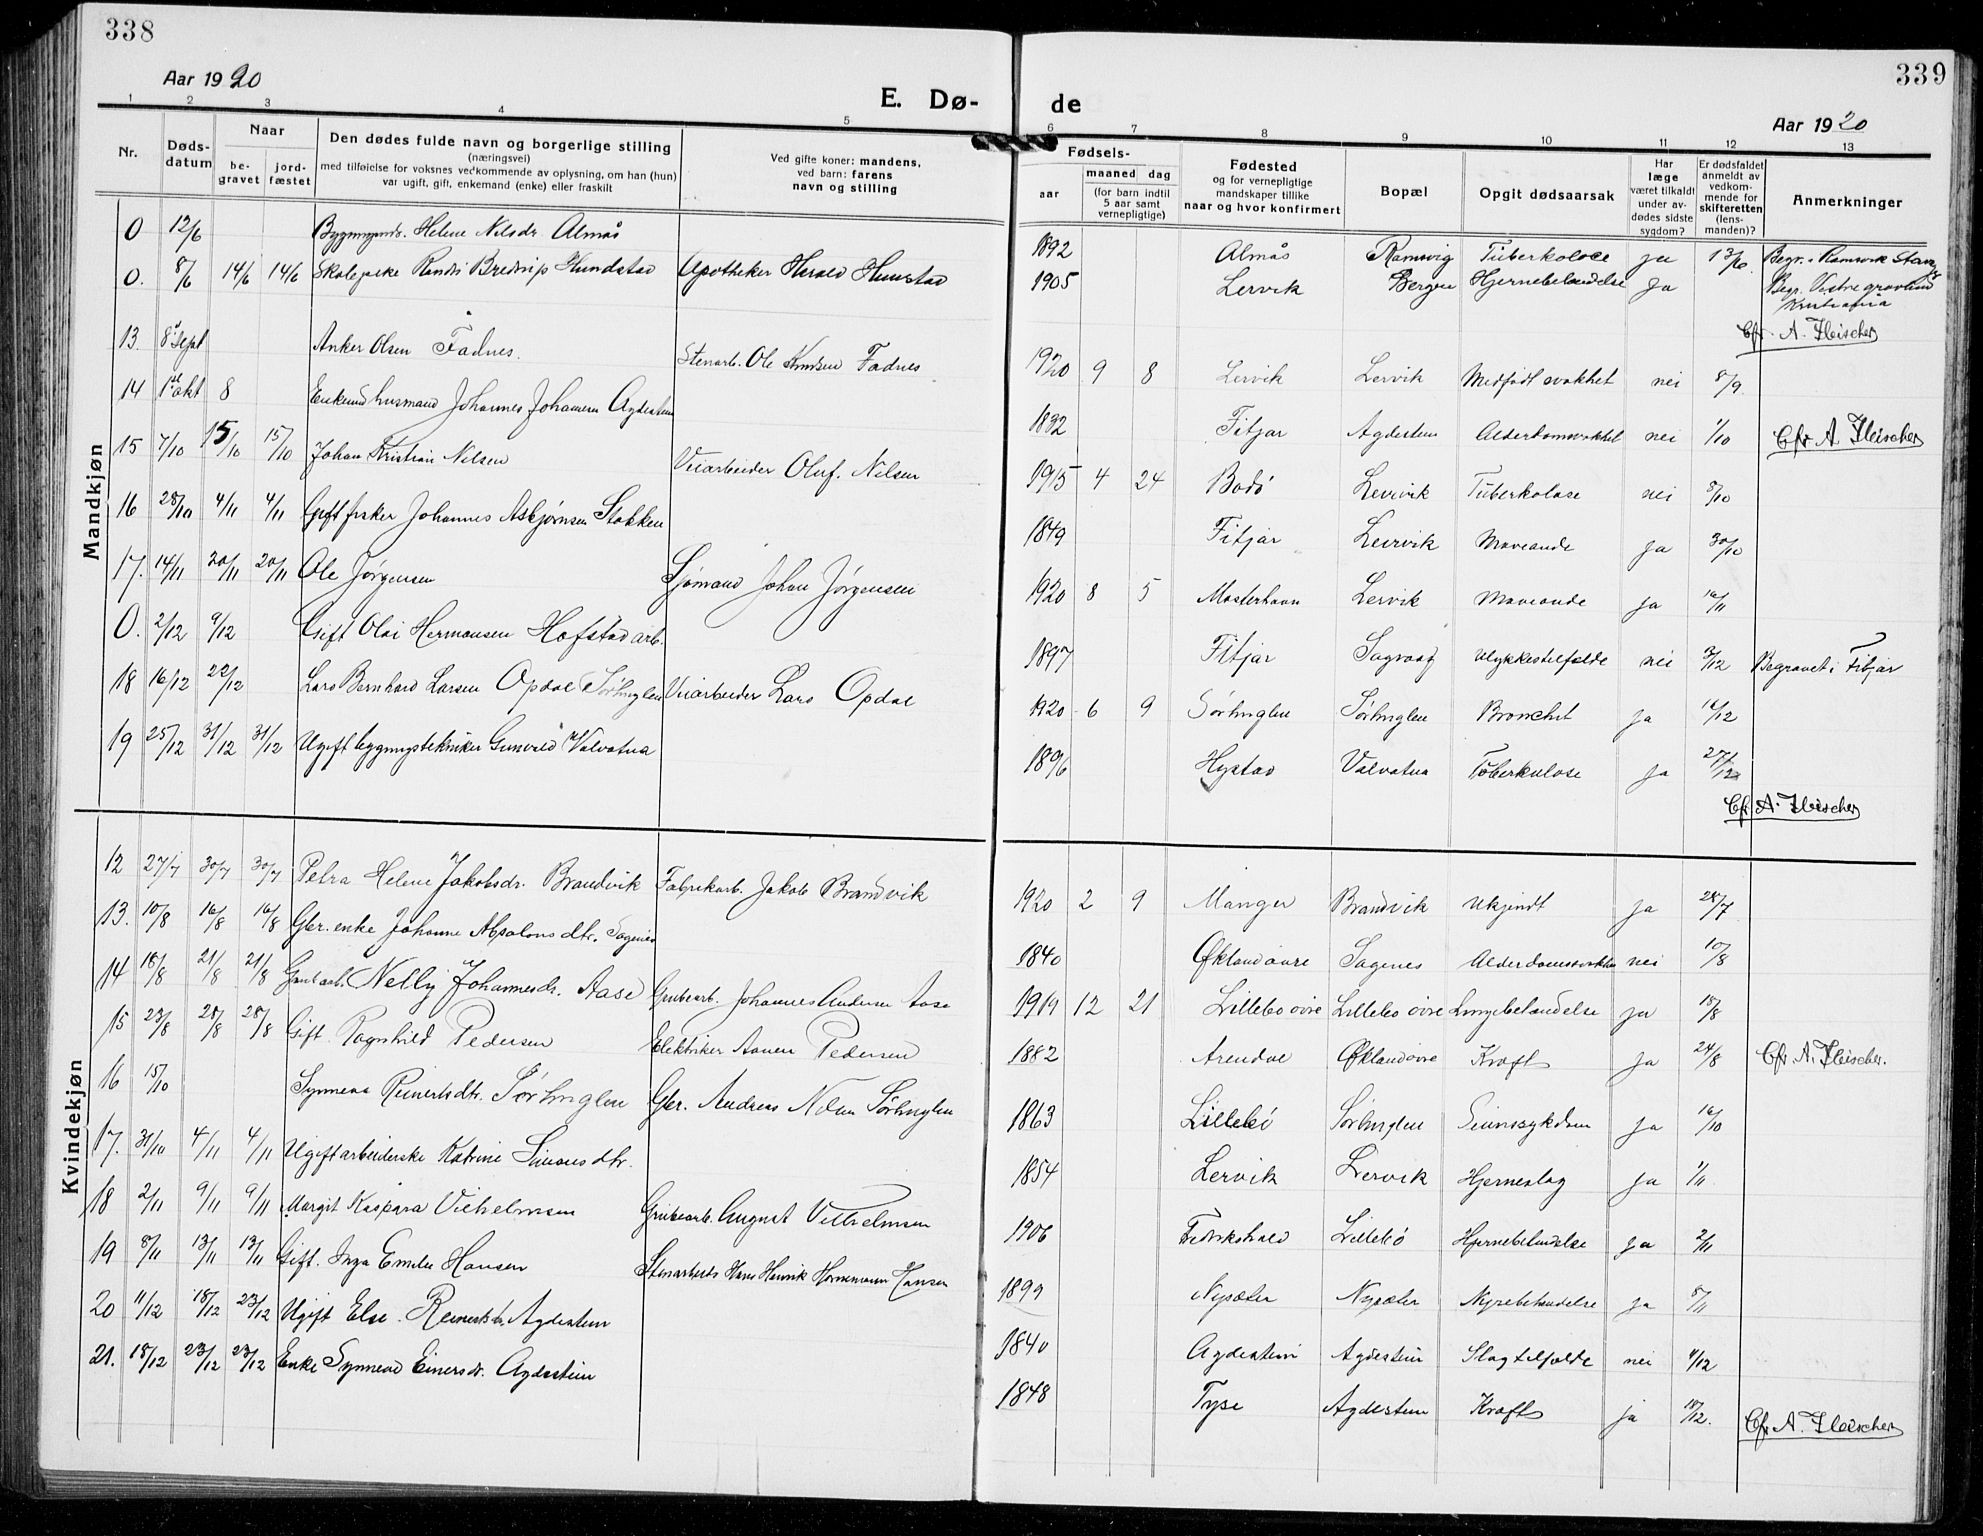 338
Aar 1920
E. Dø-
1 2 3 4 5
Nr.
Døds-
datum
Naar
be-
gravet
jord-
fæstet
Den dødes fulde navn og borgerlige stilling
(næringsvei)
med tilføielse for voksnes vedkommende av oplysning, om han (hun)
var ugift, gift, enkemand (enke) eller fraskilt
Ved gifte koner: mandens,
ved barn: farens
navn og stilling
Mandkjøn
0 12/6 Helene Nilsdr. Almås
0. 8/6 14/6 14/6 Skolepike Hundstad Apotheker
13. 8 Sept Anker Olsen Fadnes. Stenarb. Ole Knudsen Fadnes
14 1 okt 8 Johannes Johannesen Agdestein
15 7/10 15/10 15/10 Johan Kristian Nilsen Veiarbeider Oluf. Nilsen
16 28/10 4/11 4/11 Gift fisker Johannes Asbjørnsen Stokken
17. 14/11 20/11 20/11 Ole Jørgensen Sjømand Johan Jørgensen
0. 2/12 9/12 Gift Olai Hermansen Hofstad arb.
18 16/12 22/12 Lars Bernhard Larsen Opdal Sørhuglen Veiarbeider Lars Opdal
19 25/12 31/12 31/12 Ugift bygningstekniker Gunvald Valvatna
Kvindekjøn
12 27/7 30/7 30/7 Petra Helene Jakobsdr. Brandvik Fabrikarb. Jakob Brandvik
13. 10/8 16/8 16/8 Gbr. enke Johanne Absalonsdtr. Sagenes
14 18/8 21/8 21/8 Grubearb. Nelly Johannesdr. Aase Grubearb. Johannes Andersen Aase
15 23/8 28/8 28/8 Gift Ragnhild Pedersen Elektriker Pedersen
16 15/10 Synneva Reinertsdtr. Sørhuglen Gbr. Andreas Nilsen Sørhuglen
17. 31/10 4/11 4/11 Ugift arbeiderske Katrine Simonsdtr.
18 2/11 9/11 9/11 Margit Kaspara Vilhelmsen Grubearb. August Vilhelmsen
19 8/11 13/11 13/11 Gift. Inga Emilie Hansen Hans Henrik Hansen
20 11/12 18/12 23/12 Ugift Else Reinertsdr. Agdestein
21. 18/12 23/12 23/12 Enke Synneva Einersdr. Agdestein
339
de
Aar 1920
6 7 8 9 10 11 12 13
Fødsels-
aar
maaned dag
(for barn indtil
5 aar samt
vernepligtige)
Fødested
og for vernepligtige
mandskaper tillike
naar og hvor konfirmert
Bopæl
Opgit dødsaarsak
Har
læge
været tilkaldt
under av-
dødes sidste
sygdom?
Er dødsfaldet
anmeldt av
vedkom-
mende for
skifteretten
(lens-
manden)?
Anmerkninger
1892 Almås Ramsvig Tuberkolose ja 13/6
1905 Lervik Bergen Hjernebetændelse Ja Begr. Vestre gravlund
Kristiania
Cfr. A. Fleischer
1920 9 8 Lervik Lervik Medfødt svakhet nei 8/9
1832 Fitjar Agdestein Alderdomsvakhet nei 1/10 Cfr A. Fleischer
1915 4 24 Bodø Leirvik Tuberkolose nei 8/10
1849 Fitjar Leirvik Maveonde ja 30/10
1920 8 5 Mosterhavn Lervik Maveonde ja 16/11
1897 Fitjar Sagvaag Ulykkestilfælde nei 3/12 Begravet i Fitjar
1920 6 9 Sørhuglen Sørhuglen Bronchit ja 16/12
1896 Hystad Valvatna Tuberkulose ja 27/12
Cfr A. Fleischer
1920 2 9 Manger Brandvik Ukjendt ja 28/7
1840 Øklandøvre Sagenes nei 10/8
1919 12 21 Lillebø øvre Lillebø øvre Lungebetændelse ja 18/8
1882 Arendal Øklandøvre Kræft ja 24/8 Cfr. A. Fleischer.
1863 Lillebø Sørhuglen Sinnssykdom ja 16/10
1854 Lervik Lervik Hjerneslag ja 1/11
1906 Fredrikshald Lillebø Hjernebetændelse ja 2/11
1899 Nysæter Nysæter Nyrebetændelse ja 8/11
1840 Agdestein Agdestein Slagtilfælde nei 11/12
1848 Tyse Agdestein Kræft ja 18/12.
Cfr A. Fleischer